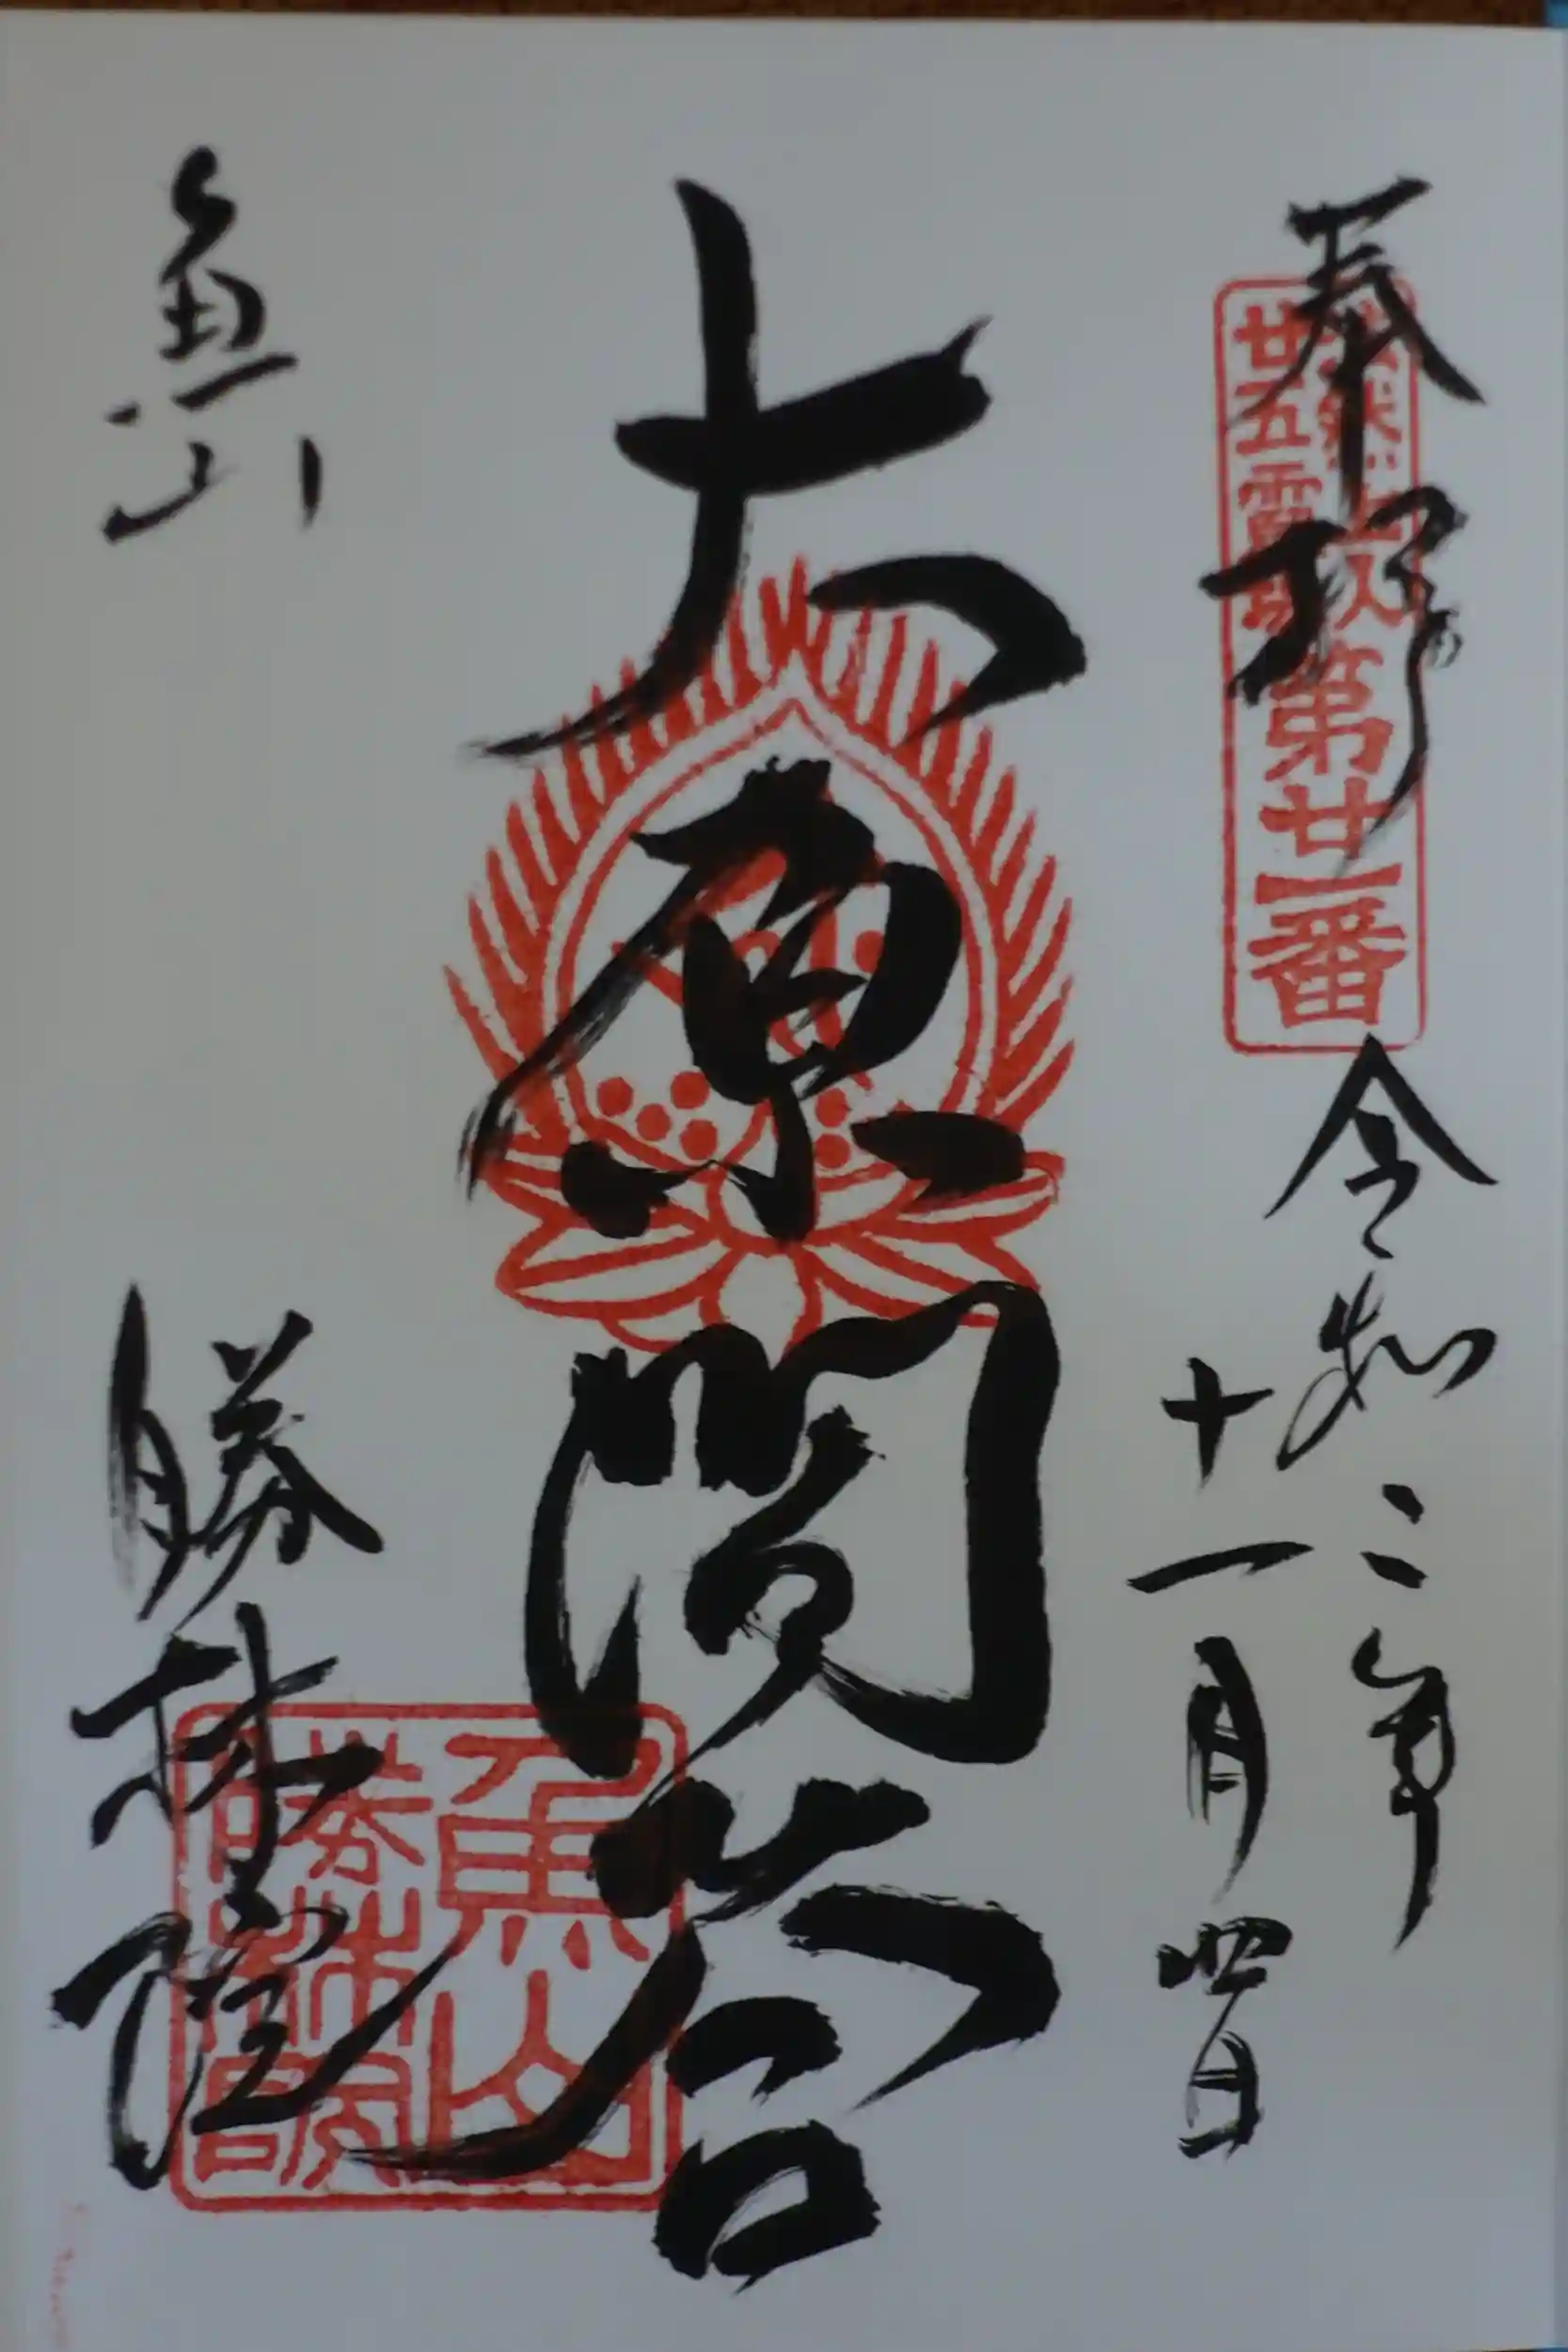 奉拝
法然上人
廿五霊場
第廿一番
令和二年
十一月四日
大原問答
魚山
勝林院
魚山
勝林院